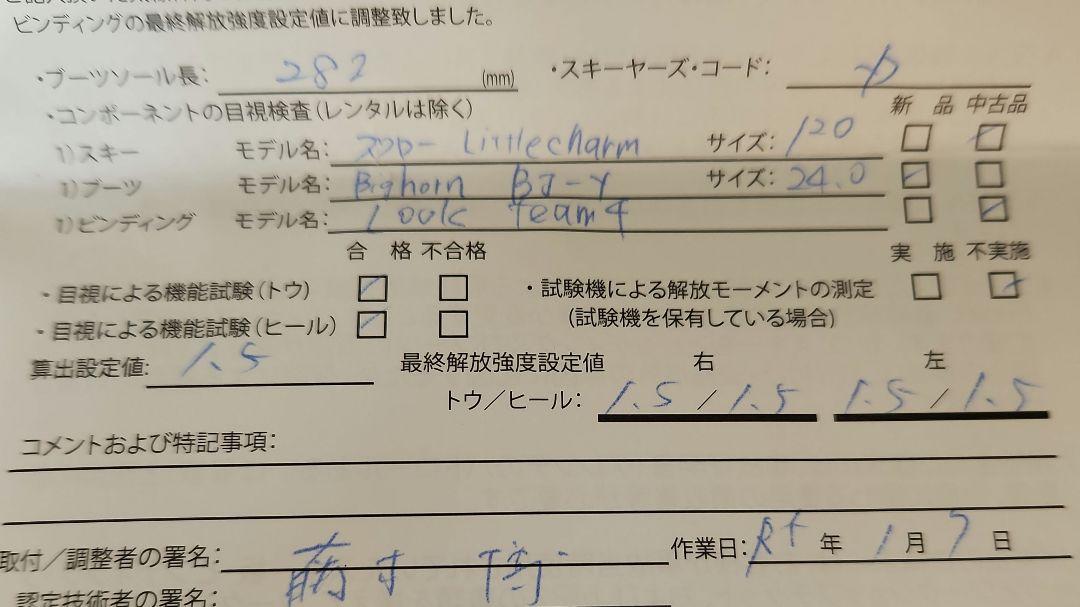 ビンディングの最終解放強度設定値に調整致しました。
・ブーツソール長: 282 (mm) ・スキーヤーズ・コード:
・コンポーネントの目視検査(レンタルは除く) 新 品 中古品
1)スキー モデル名: スワロー Littlecharm サイズ: 120
1)ブーツ モデル名: Bighorn BJ-Y サイズ: 24.0
1)ビンディング モデル名: Look Team4
合 格 不合格 実 施 不実施
・目視による機能試験(トウ) ・試験機による解放モーメントの測定
・目視による機能試験(ヒール) (試験機を保有している場合)
算出設定値: 1.5 最終解放強度設定値 右 左
トウ/ヒール: 1.5 / 1.5 1.5 / 1.5
コメントおよび特記事項:
取付/調整者の署名: 作業日: 年 1 月 7 日
認定技術者の署名: